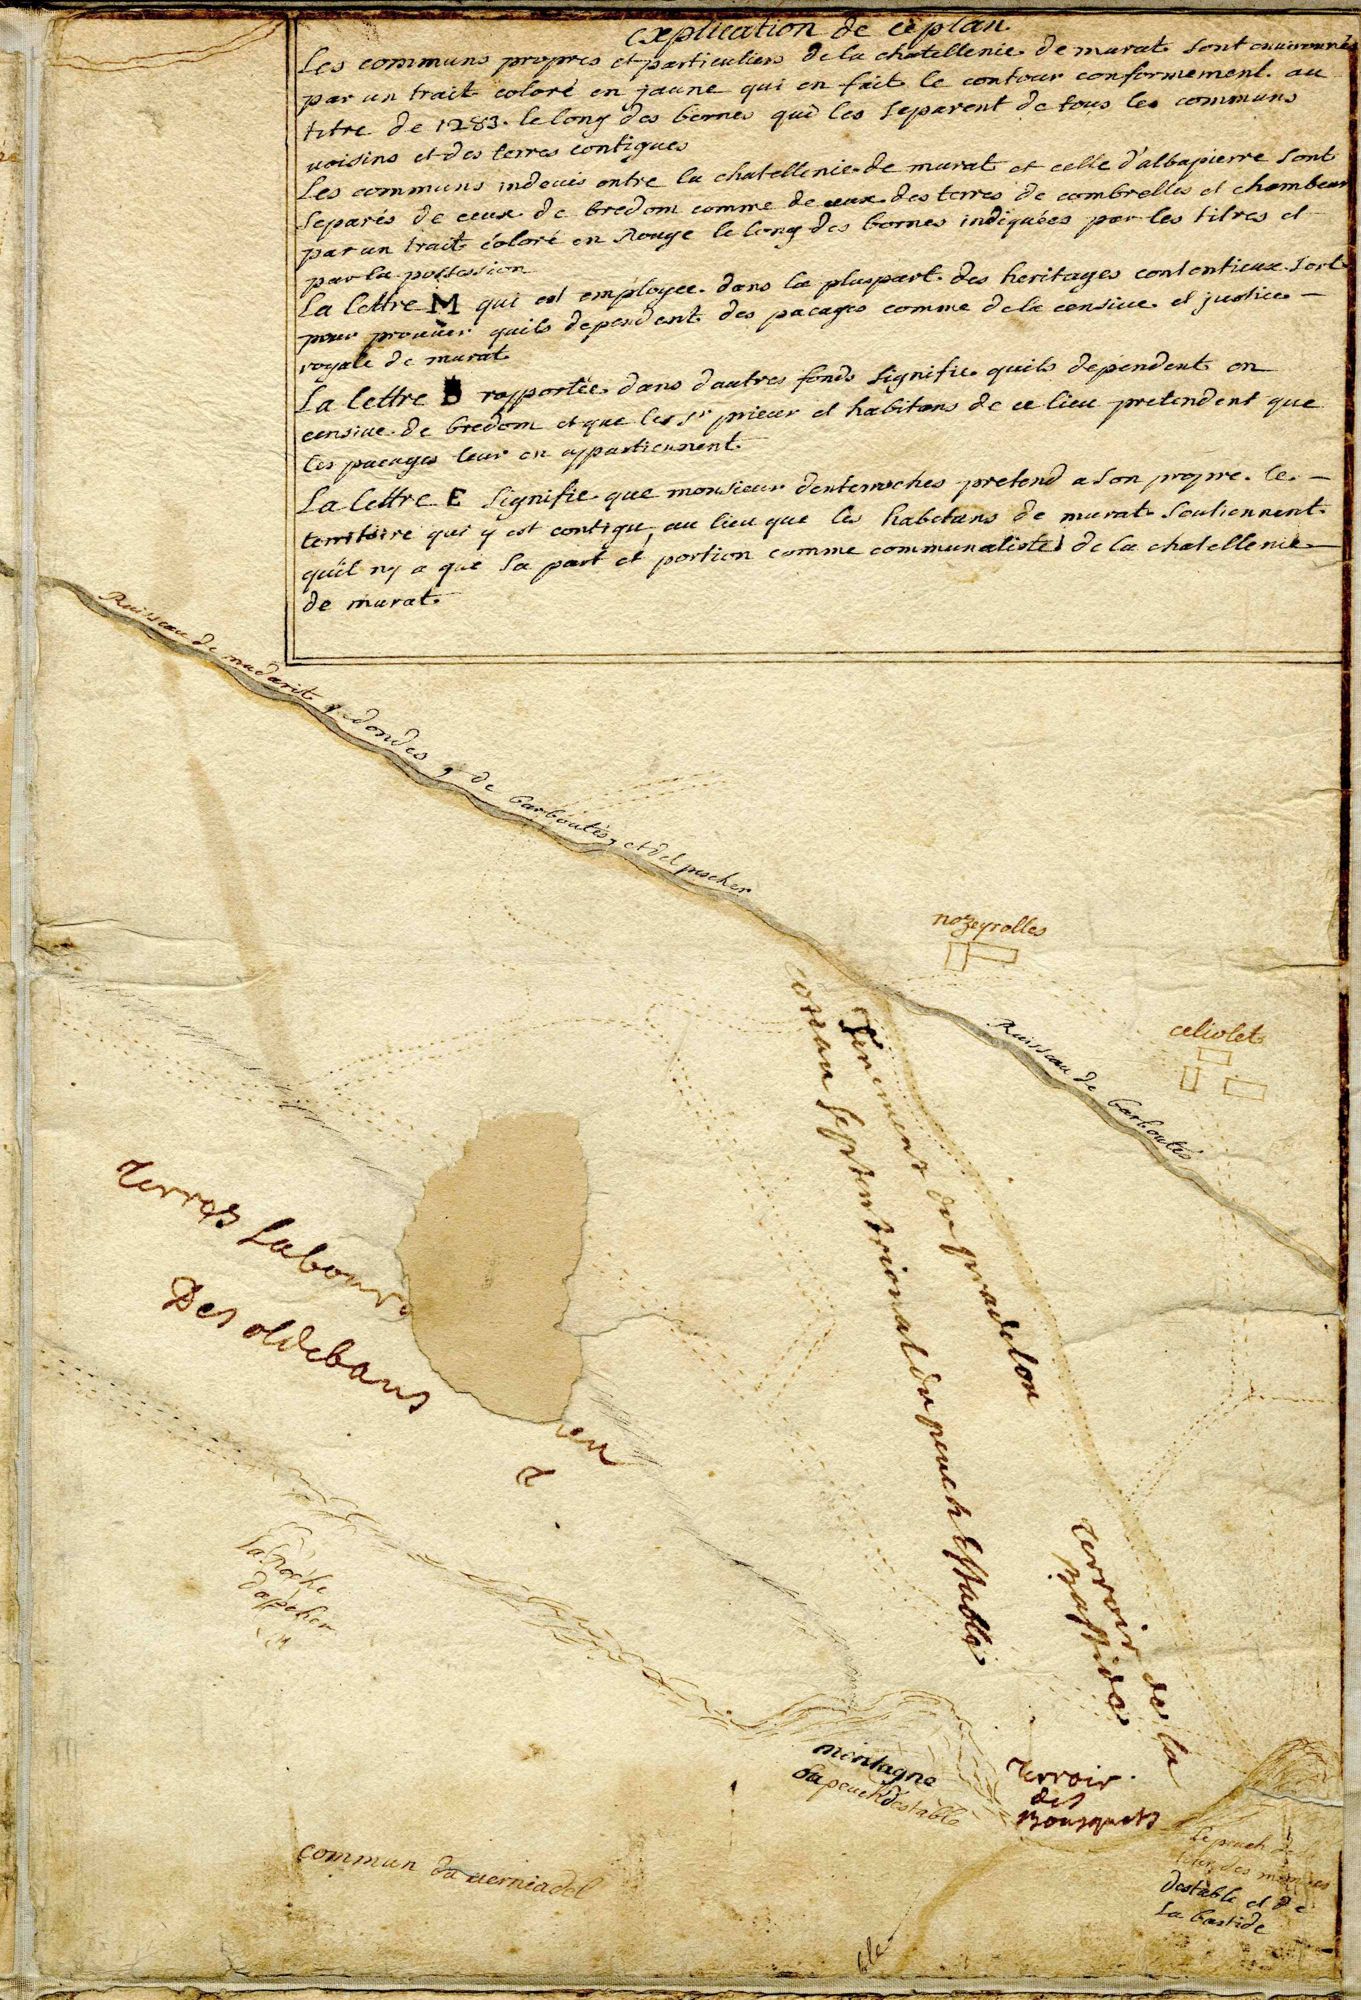 explication de ce plan
Les communs propres et particuliers de la chatellenie de murat sont environnés
par un trait coloré en jaune qui en fait le contour conformement au
titre de 1283. le long des bornes qui les separent de tous les communs
voisins et des terres contigues
Les communs indevis entre la chatellenie de murat et celle d'albapierre sont
separés de ceux de bredom comme de ceux des terres de combrelles et chambeur
par un trait coloré en Rouge le long des bornes indiquées par les titres et
par la possession
La lettre M qui est employée dans la pluspart des heritages contentieux sert
pour prouver quils dependent des pacages comme de la censive et justice —
royale de murat
La lettre B rapportée dans dautres fonds signifie quils dependent en
censive de bredom et que les sr prieur et habitans de ce lieu pretendent que
les pacages leur en appartiennent
La lettre E signifie que monsieur denterroches pretend a son propre le —
territoire qui y est contigu, au lieu que les habitans de murat soutiennent
qu'il ny a que sa part et portion comme communaliste de la chatellenie —
de murat
Ruisseau de nadarit, redondes, de barboutès, et del pescher
nozeyrolles
celiolet
Ruisseau de barboutès
Tenement du pradelou
costau septentrional du peuch estable
terres labour
Des oldebaus
en
La Roche
montagne
du peuch destable
terroir de la
bastide
terroir
des
Bousquets
Le peuch de
destable et de
La bastide
commun du verniadel